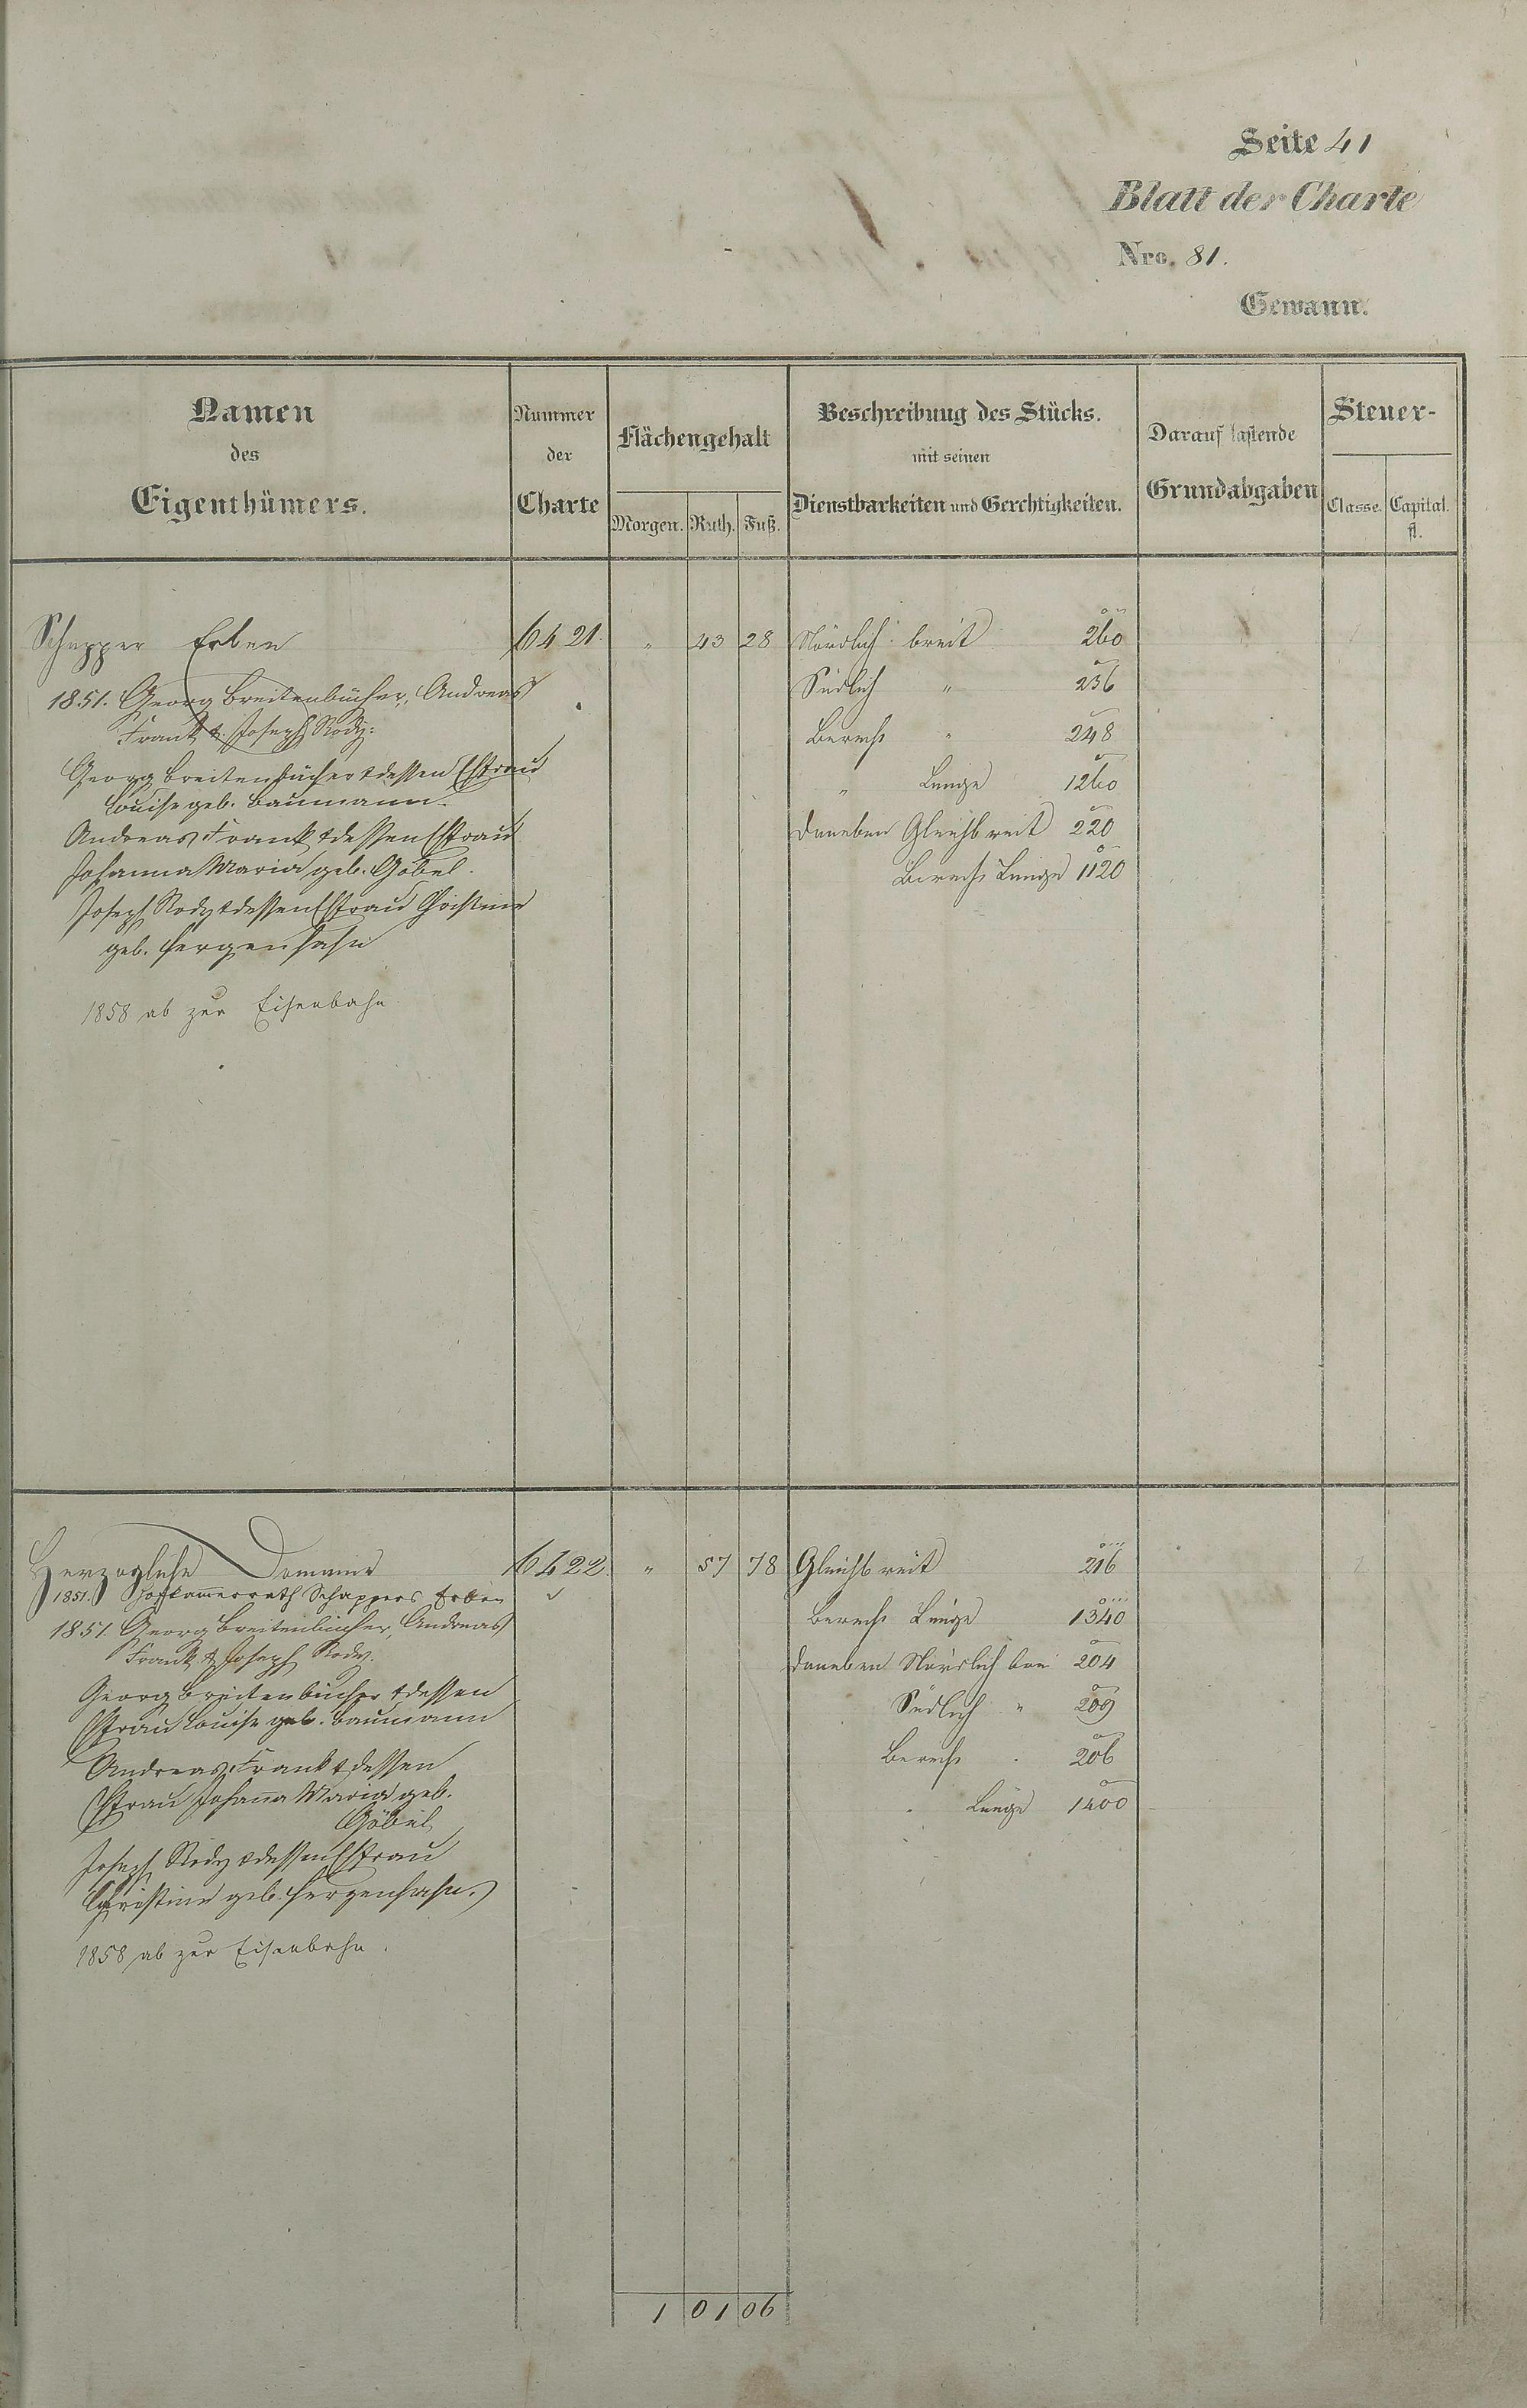 Seite 41
Blatt der Charte
Nro. 81.
Gewann.
Namen
des
Eigenthümers.
Nummer
der
Charte
Flächengehalt
Morgen. Ruth. Fuß.
Beschreibung des Stücks.
mit seinen
Dienstbarkeiten und Gerechtigkeiten.
Darauf lastende
Grundabgaben
Steuer-
Classe. Capital.
fl.
Schapper Erben 6421. " 43 28 Nördlich breit 260
1851. Georg Breitenbücher, Andreas Südlich " 236
Frank & Joseph Rody: Berech " 248
Georg Breitenbücher & dessen Ehfrau " Länge 1260
Louise geb. Baumann.
Andreas Frank & dessen Ehfrau Daneben Gleichbreit 220
Johanna Maria geb. Göbel. Berech Länge 1120
Joseph Rody & dessen Ehfrau Christine
geb. Hergenhahn
1858 ab zur Eisenbahn.
Herzogliche Domaine 6422 " 57 78 Gleichbreit 216
1851. Hofkammerrath Schappers Erben Berech Länge 1340
1851. Georg Breitenbücher, Andreas
Frank & Joseph Rody. Daneben Nördlich 204
Georg Breitenbücher & dessen Südlich " 209
Ehfrau Louise geb. Baumann
Andreas Frank & dessen Berech " 206
Ehfrau Johanna Maria geb. " Länge 1400
Göbel
Joseph Rody & dessen Ehfrau
Christine geb. Hergenhahn.
1858 ab zur Eisenbahn.
1 01 06